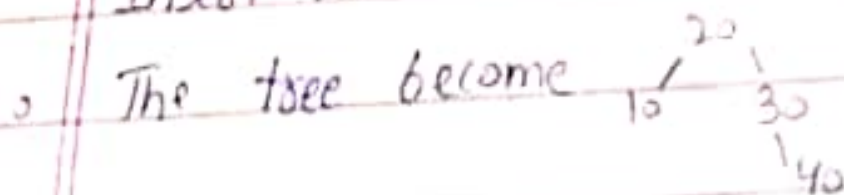 , The tree become
20
10 30
40